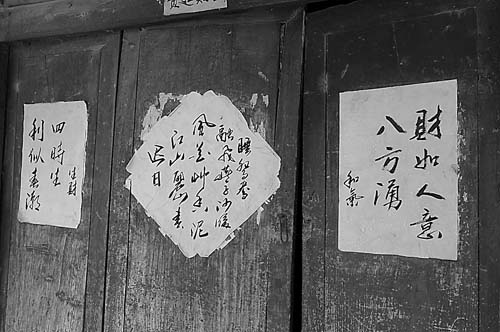 財如人意
八方湧
和氣
迟日
江山麗春
風花艸香泥
融飛燕子沙暖
睡鴛鴦
生財
四時生
利似春潮